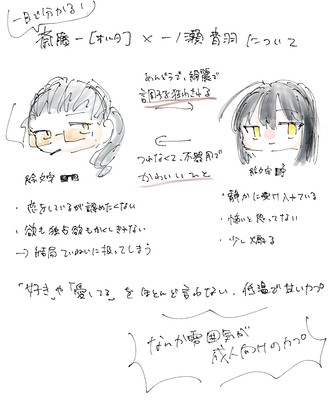 一目で分かる!
斎藤一[オルタ]×一ノ瀬青羽について
めんどうで、綺麗で
調子を狂わされる
つれなくて、不器用で
かわいいひと
・恋をしているが認めたくない
・静かに受け入れている
・欲も独占欲もかくしきれない
・怖いと思ってない
→結局ていねいに扱ってしまう
・少し煽る
「好き」や「愛してる」をほとんど言わない、低温で甘いカプ
なんか雰囲気が
成人向けのカプ